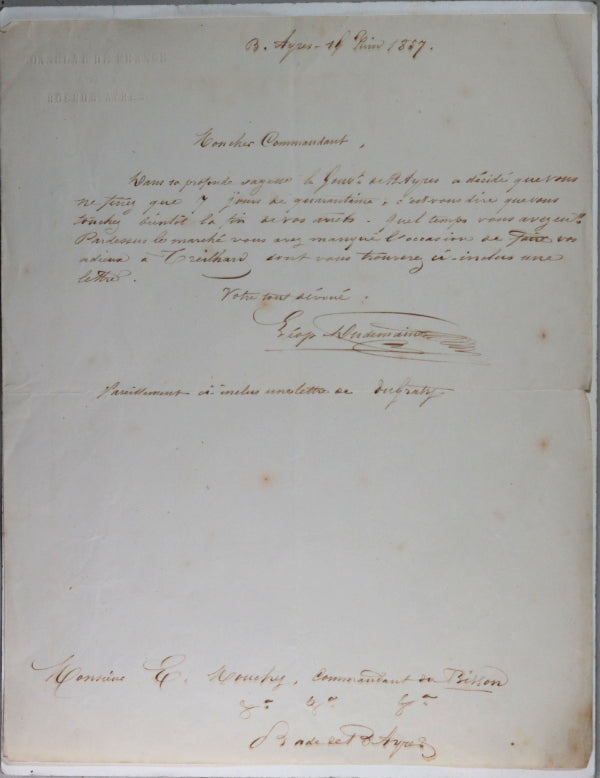 CONSULAT DE FRANCE
BUENOS AYRES
B. Ayres - 16 Juin 1857.
Mon cher Commandant,
Dans sa profonde sagesse le Gouvt. de B Ayres a décidé que vous
ne feriez que 7 jours de quarantaine; c'est vous dire que vous
touchez bientôt la fin de vos arrêts. Quel temps vous avez eu!!
Pardessus le marché vous avez manqué l'occasion de faire vos
adieux à Treilhard dont vous trouverez ci-inclus une
lettre.
Votre tout dévoué.
Pareillement ci-inclus une lettre de duGraty
Monsieur E. Mouchez, Commandant du Bisson
Rade de B Ayres